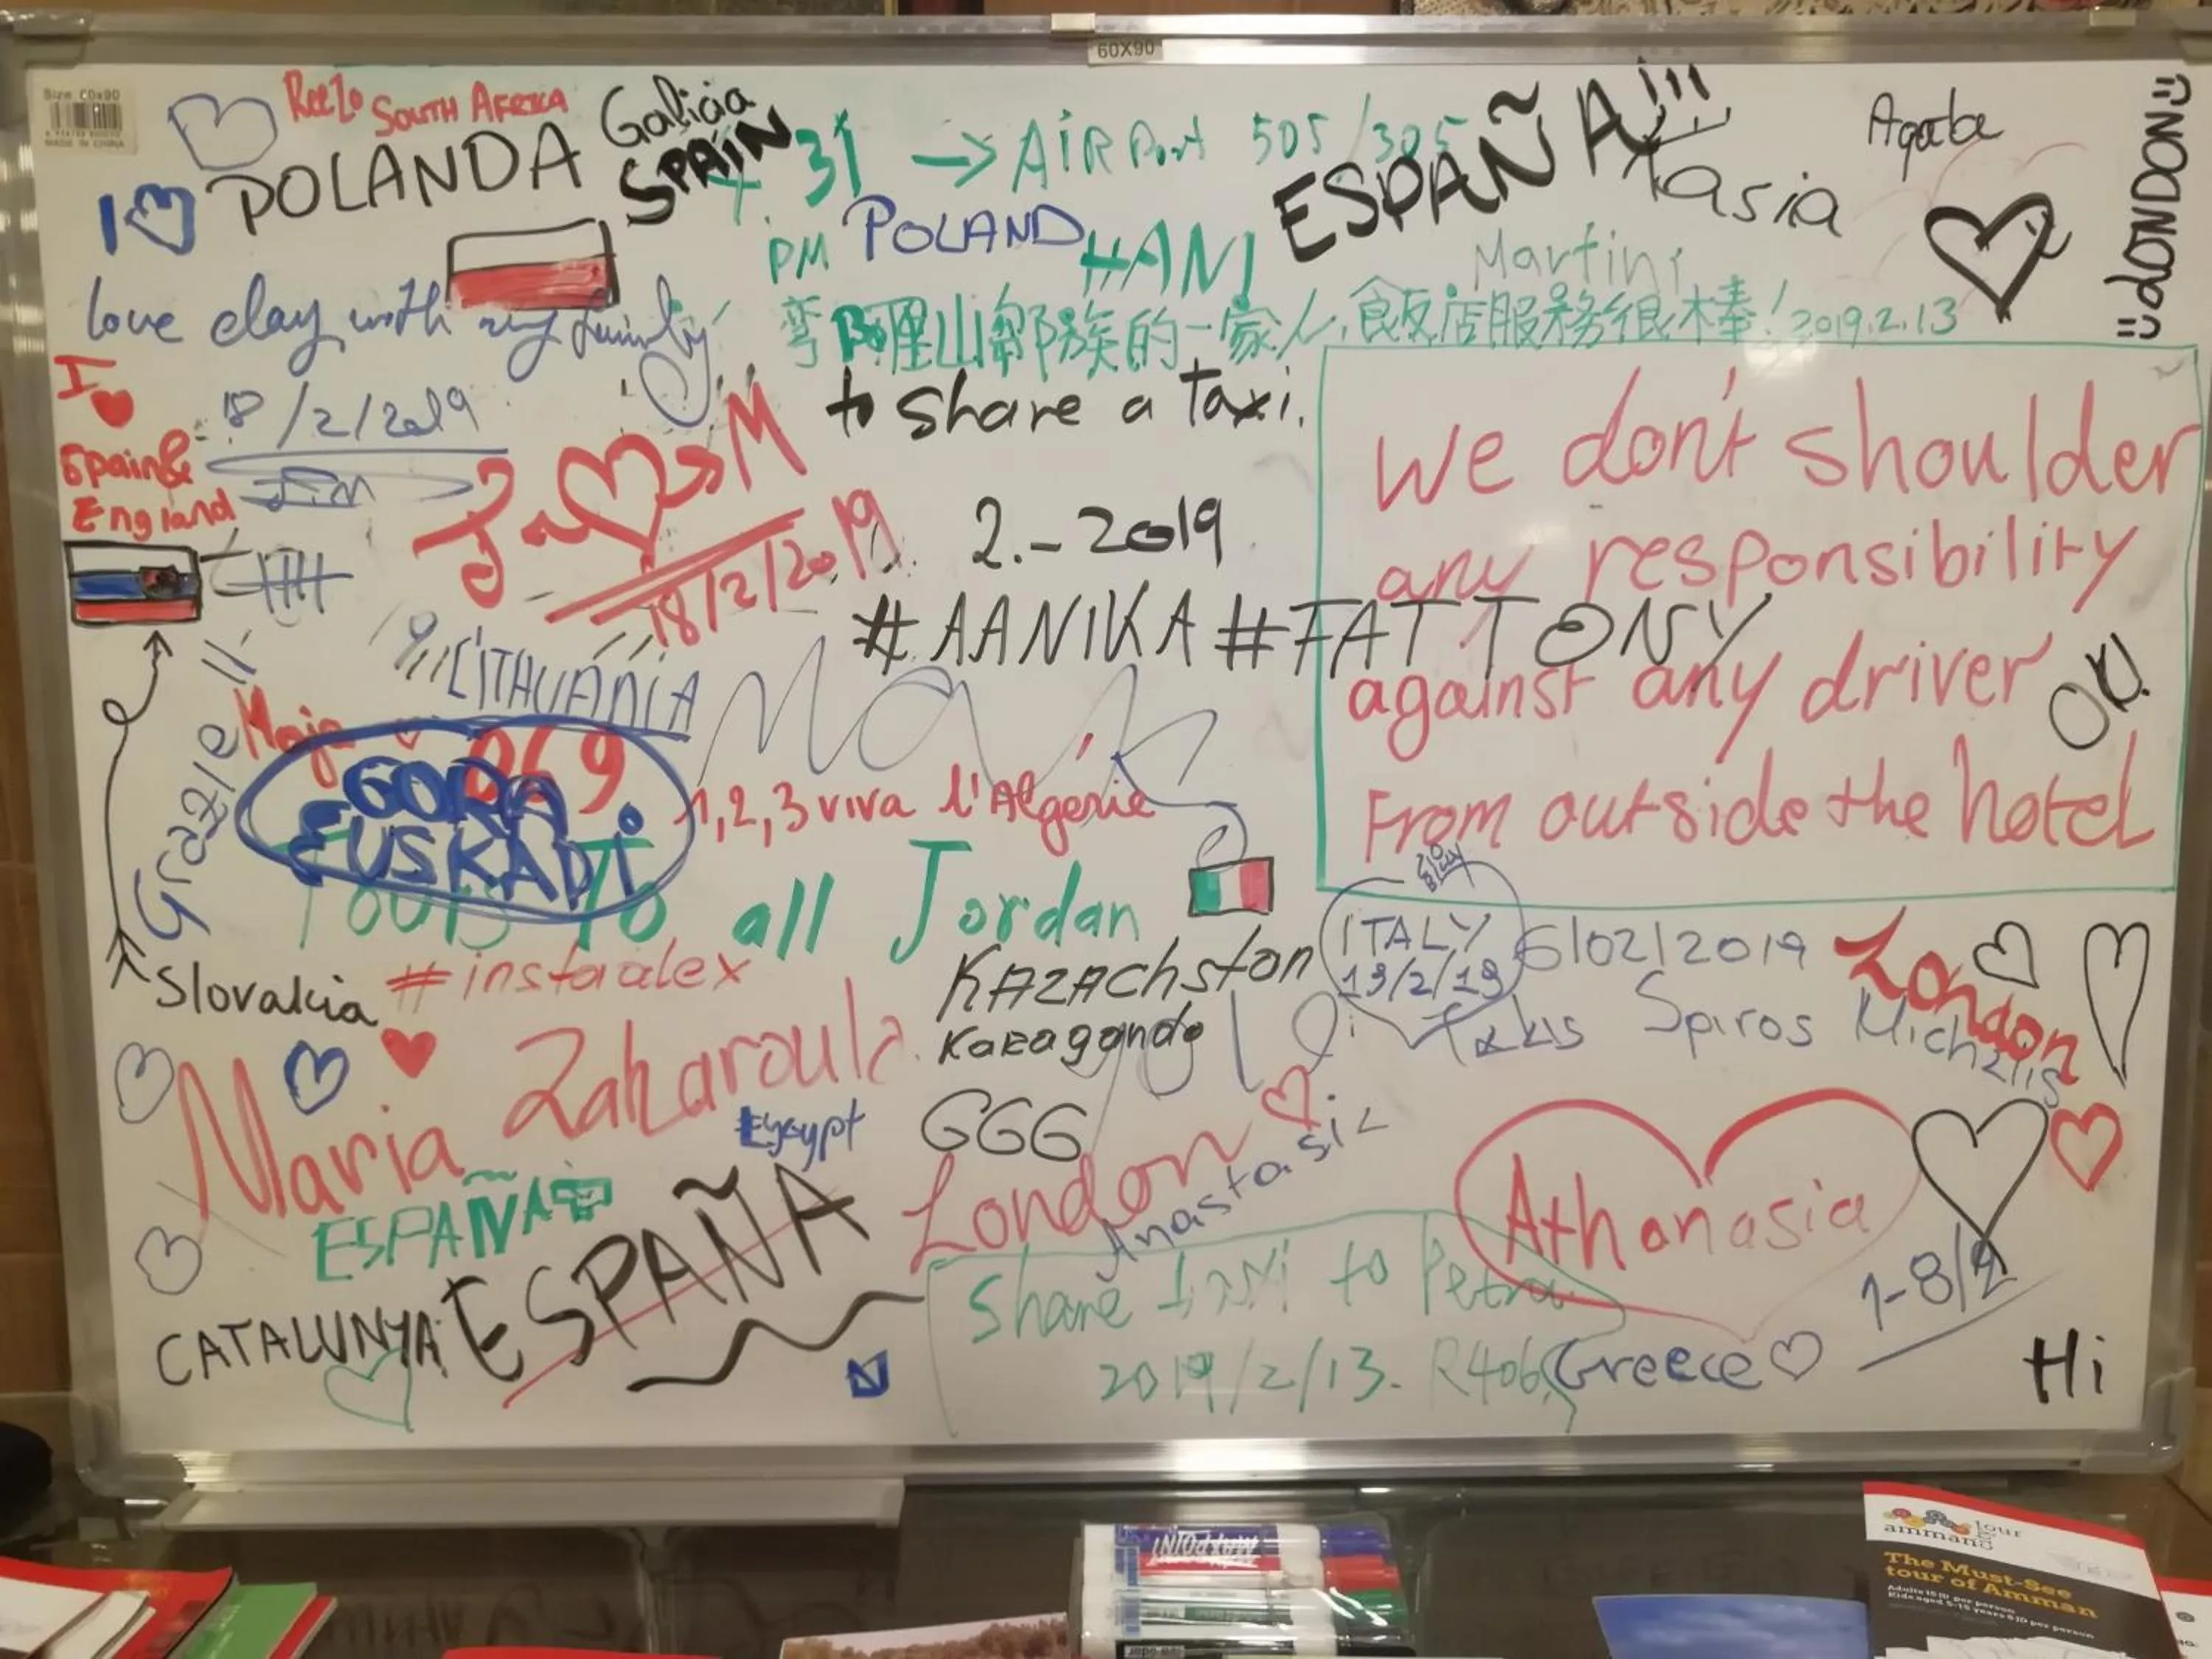 60X90
Size 60x90
MADE IN CHINA
ReeZo South Africa
Galicia
SPAIN
31 → AiRPort 505/305
ESPAÑA!!!
Kasia
Agata
LONDON
I POLANDA
PM POLAND
HANI
Martini
love day with my family
的一家人,飯店服務很棒! 2019.2.13
I
Spain &
England
18/2/2019
to share a Taxi.
J M
18/2/2019
2.-2019
#AANIKA #FATTONY
We don't shoulder
any responsibility
against any driver
From outside the hotel
OK!
LITHUANIA
Maja
069
GORA
EUSKADI
Graziella
Mark
1,2,3 viva l'Algérie
Tours To all Jordan
Slovakia
#instaalex
KAZACHstan
Karaganda
GGG
ITALY
13/2/19
6/02/2019
Takis Spiros Michalis
London
Maria Zaharoula
Egypt
London
Anastasia
Athanasia
ESPAÑA
ESPAÑA
CATALUNYA
Share taxi to Petra
2019/2/13. R406
Greece
1-8/2
Hi
MAXPOINT
tour
amman
The Must-See
tour of Amman